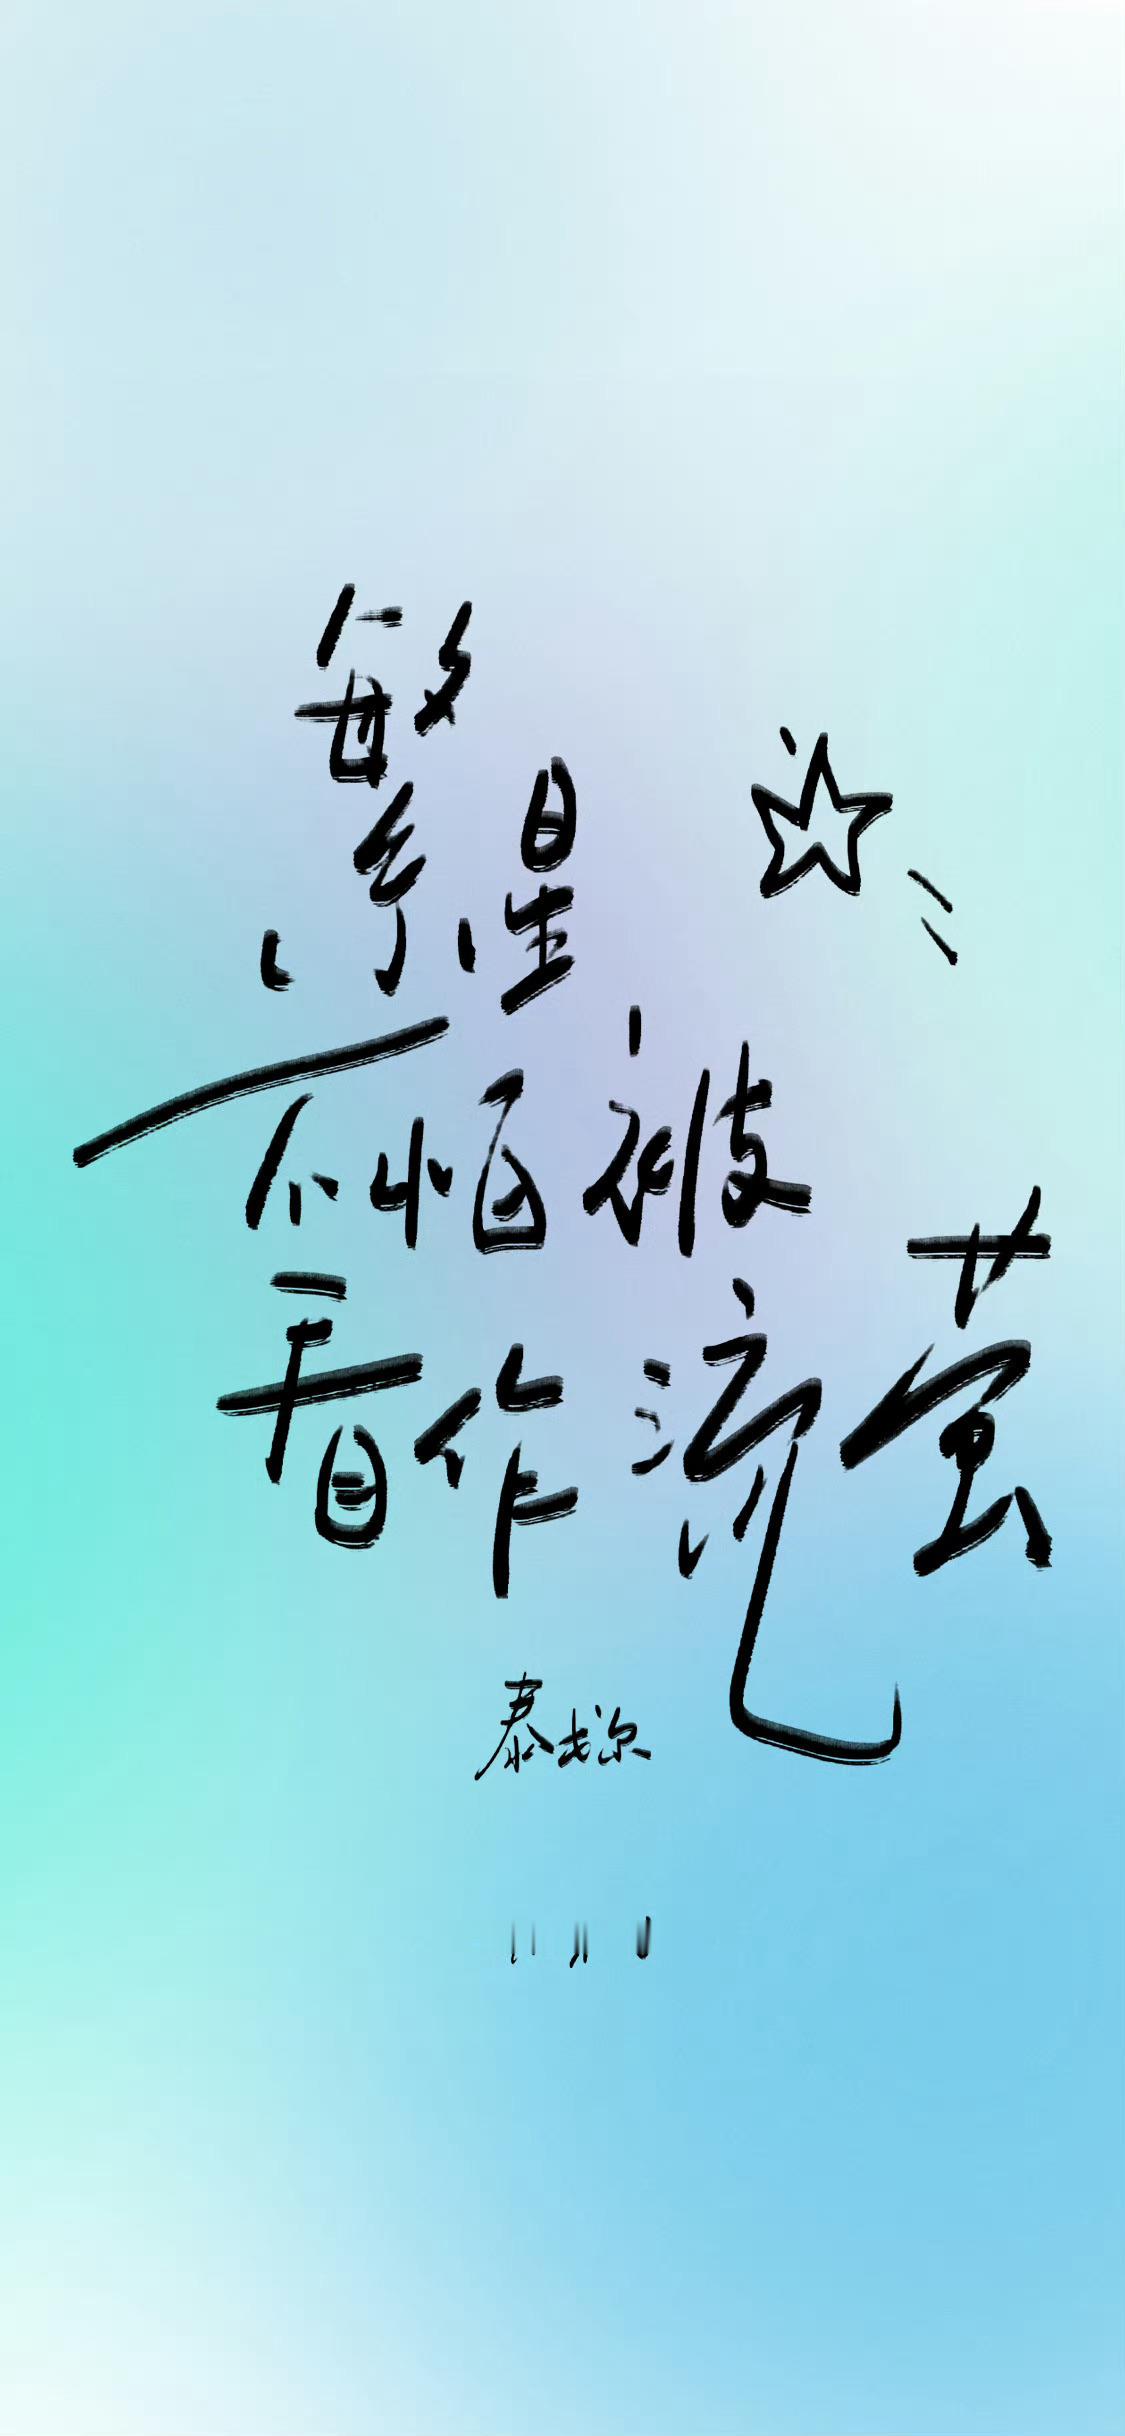 繁星
不怕被
看作流萤
泰戈尔